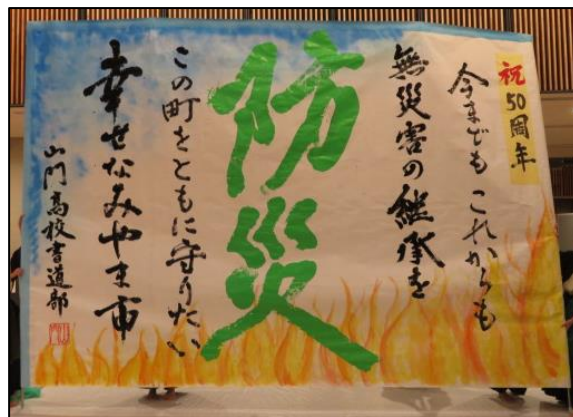 祝50周年
今までも これからも
無災害の継承を
防災
この町をともに守りたい
幸せなみやま市
山門高校書道部